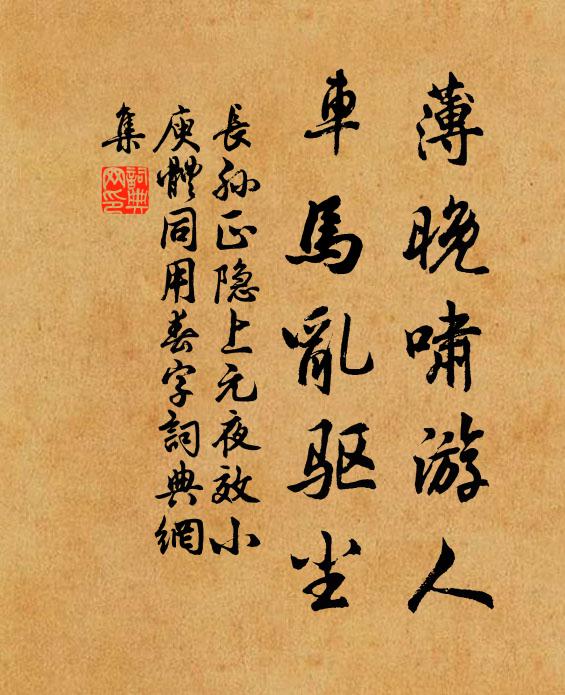 薄晚嘯游人
車馬亂驱尘
長孙正隐上元夜效小
庾體同用春字詞典網
集
詞典网印